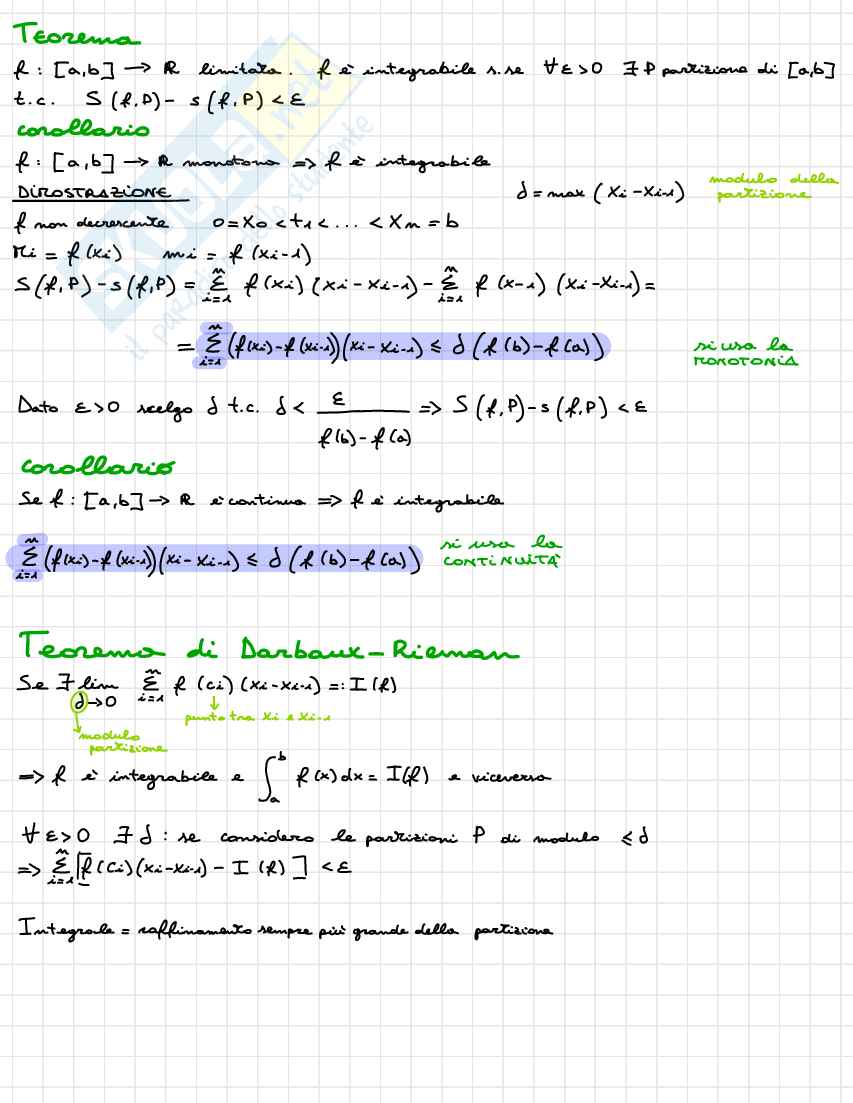 Teorema
f : [a,b] → R limitata. f è integrabile s.se ∀ε>0 ∃ P partizione di [a,b]
t.c. S(f,P) - s(f,P) < ε
corollario
f : [a,b] → R monotona => f è integrabile
DIMOSTRAZIONE
δ = max (xi - xi-1) modulo della
partizione
f non decrescente 0 = x0 < t1 < ... < xn = b
Mi = f(xi) mi = f(xi-1)
S(f,P) - s(f,P) = Σ_{i=1}^{n} f(xi)(xi - xi-1) - Σ_{i=1}^{n} f(x-1)(xi - xi-1) =
= Σ_{i=1}^{n} (f(xi) - f(xi-1))(xi - xi-1) ≤ δ(f(b) - f(a)) si usa la
MONOTONIA
Dato ε>0 scelgo δ t.c. δ < ε / f(b) - f(a) => S(f,P) - s(f,P) < ε
corollario
Se f : [a,b] → R è continua => f è integrabile
Σ_{i=1}^{n} (f(xi) - f(xi-1))(xi - xi-1) ≤ δ(f(b) - f(a)) si usa la
CONTINUITÀ
Teorema di Darboux-Rieman
Se ∃ lim_{δ→0} Σ_{i=1}^{n} f(ci)(xi - xi-1) =: I(f)
punto tra xi e xi-1
modulo
partizione
=> f è integrabile e ∫_a^b f(x)dx = I(f) e viceversa
∀ε>0 ∃ δ : se considero le partizioni P di modulo ≤ δ
=> Σ_{i=1}^{n} [f(ci)(xi - xi-1) - I(f)] < ε
Integrale = raffinamento sempre più grande della partizione
SKUOLA.net
il paradiso dello studente